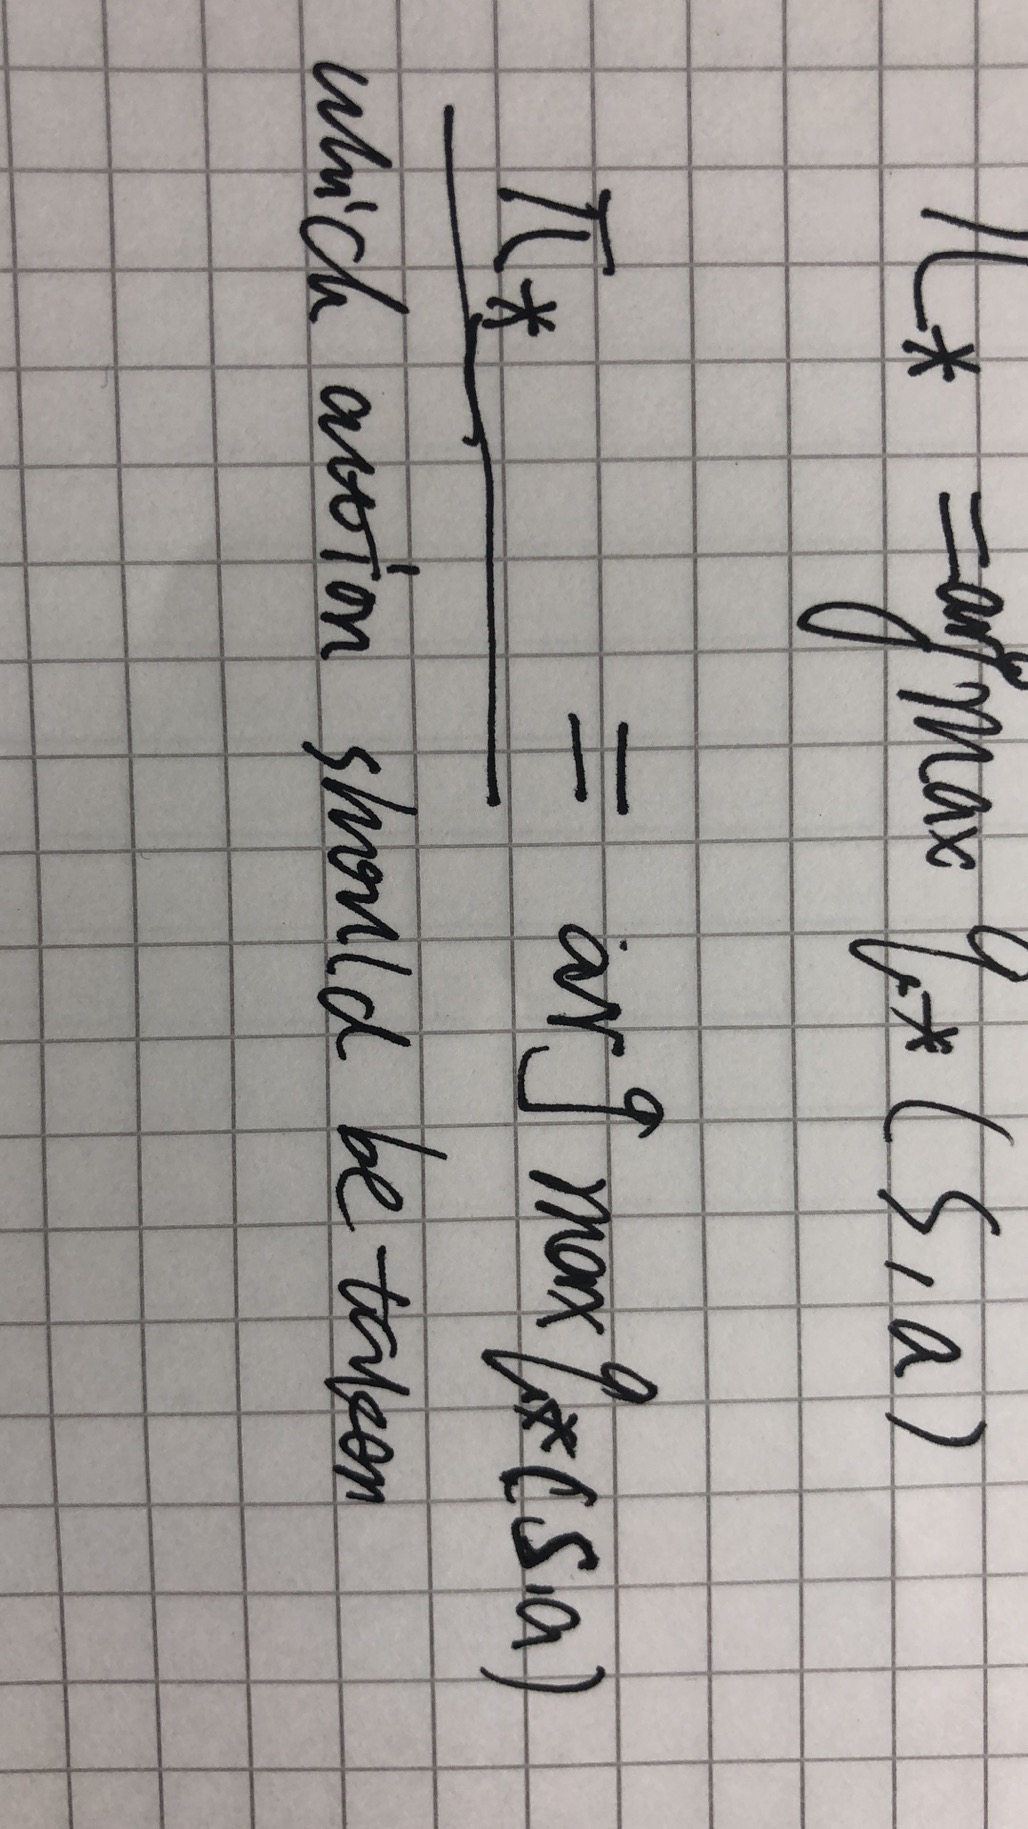 π* = arg max q* (s, a)
π* = arg max q* (s, a)
which action should be taken